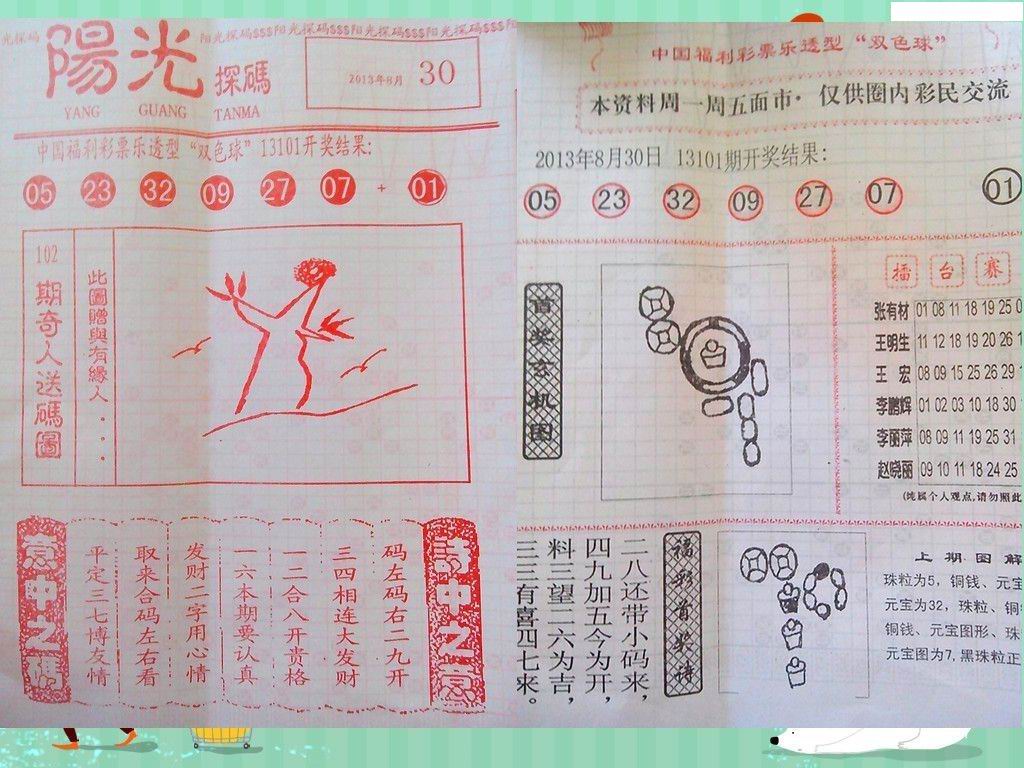 光探码 阳光探码$$$阳光探码$$$阳光探码$$$阳光探码$$$
陽光探碼
YANG GUANG TANMA
2013年8月 30
中国福利彩票乐透型“双色球”13101开奖结果:
05 23 32 09 27 07 + 01
102期奇人送碼圖
此圖贈與有緣人....
码左码右二九开
三四相连大发财
一二合八开贵格
一六本期要认真
发财二字用心情
取来合码左右看
平定三七博友情
中国福利彩票乐透型“双色球”
本资料周一周五面市·仅供圈内彩民交流
2013年8月30日 13101期开奖结果:
05 23 32 09 27 07 01
首奖玄机图
擂台赛
张有材 01 08 11 18 19 25 0
王明生 11 12 18 19 20 26 1
王 宏 08 09 15 25 26 29 1
李鹏辉 01 02 03 10 18 30 1
李丽萍 08 09 11 19 25 31
赵晓丽 09 10 11 18 24 25
(纯属个人观点,请勿照此
福彩首奖诗
二八还带小码来,
四九加五今为开,
料三望二六为吉,
三三有喜四七来。
上期图解
珠粒为5，铜钱、元宝
元宝为32，珠粒、铜
铜钱、元宝图形、珠
元宝图为7,黑珠粒正